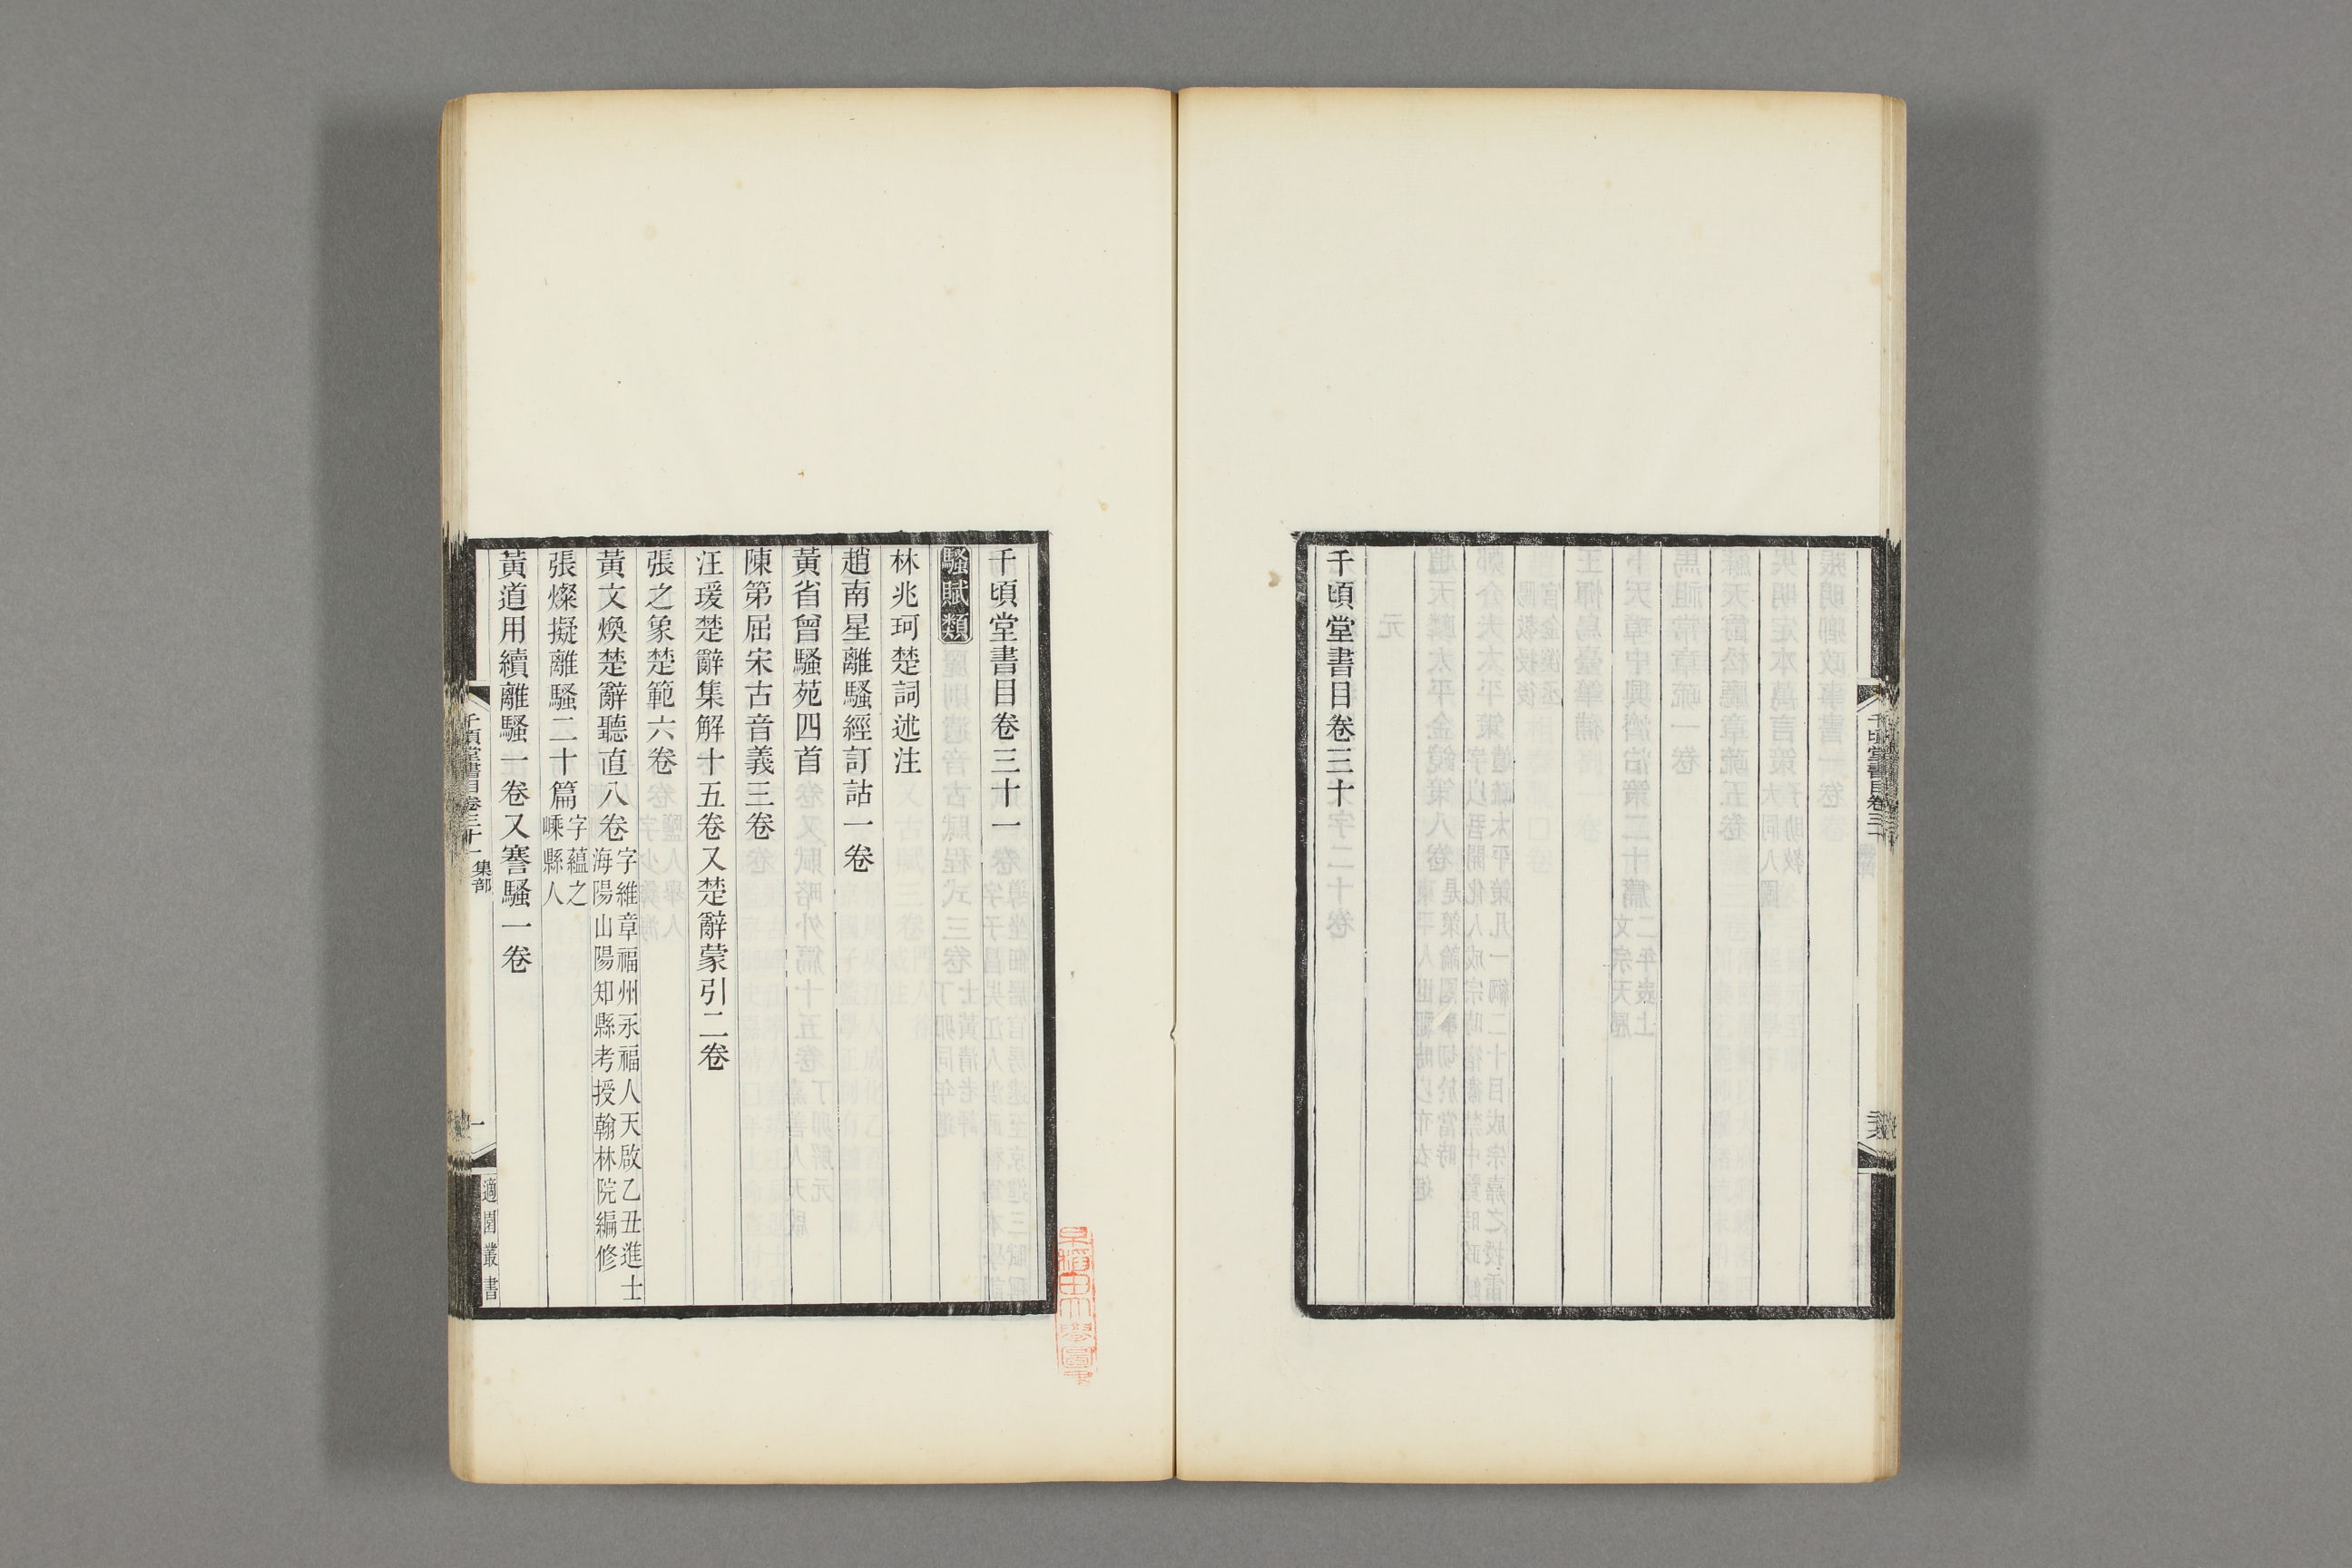 千頃堂書目卷三十
千頃堂書目卷三十一
騷賦類
林兆珂楚詞述注
趙南星離騷經訂詁一卷
黃省曾騷苑四首
陳第屈宋古音義三卷
汪瑗楚辭集解十五卷又楚辭蒙引二卷
張之象楚範六卷
黃文煥楚辭聽直八卷
字維章福州永福人天啟乙丑進士
海陽山陽知縣考授翰林院編修
張燦擬離騷二十篇
字蘊之
嵊縣人
黃道用續離騷一卷又謇騷一卷
千頃堂書目卷三十一
集部
一
適園叢書